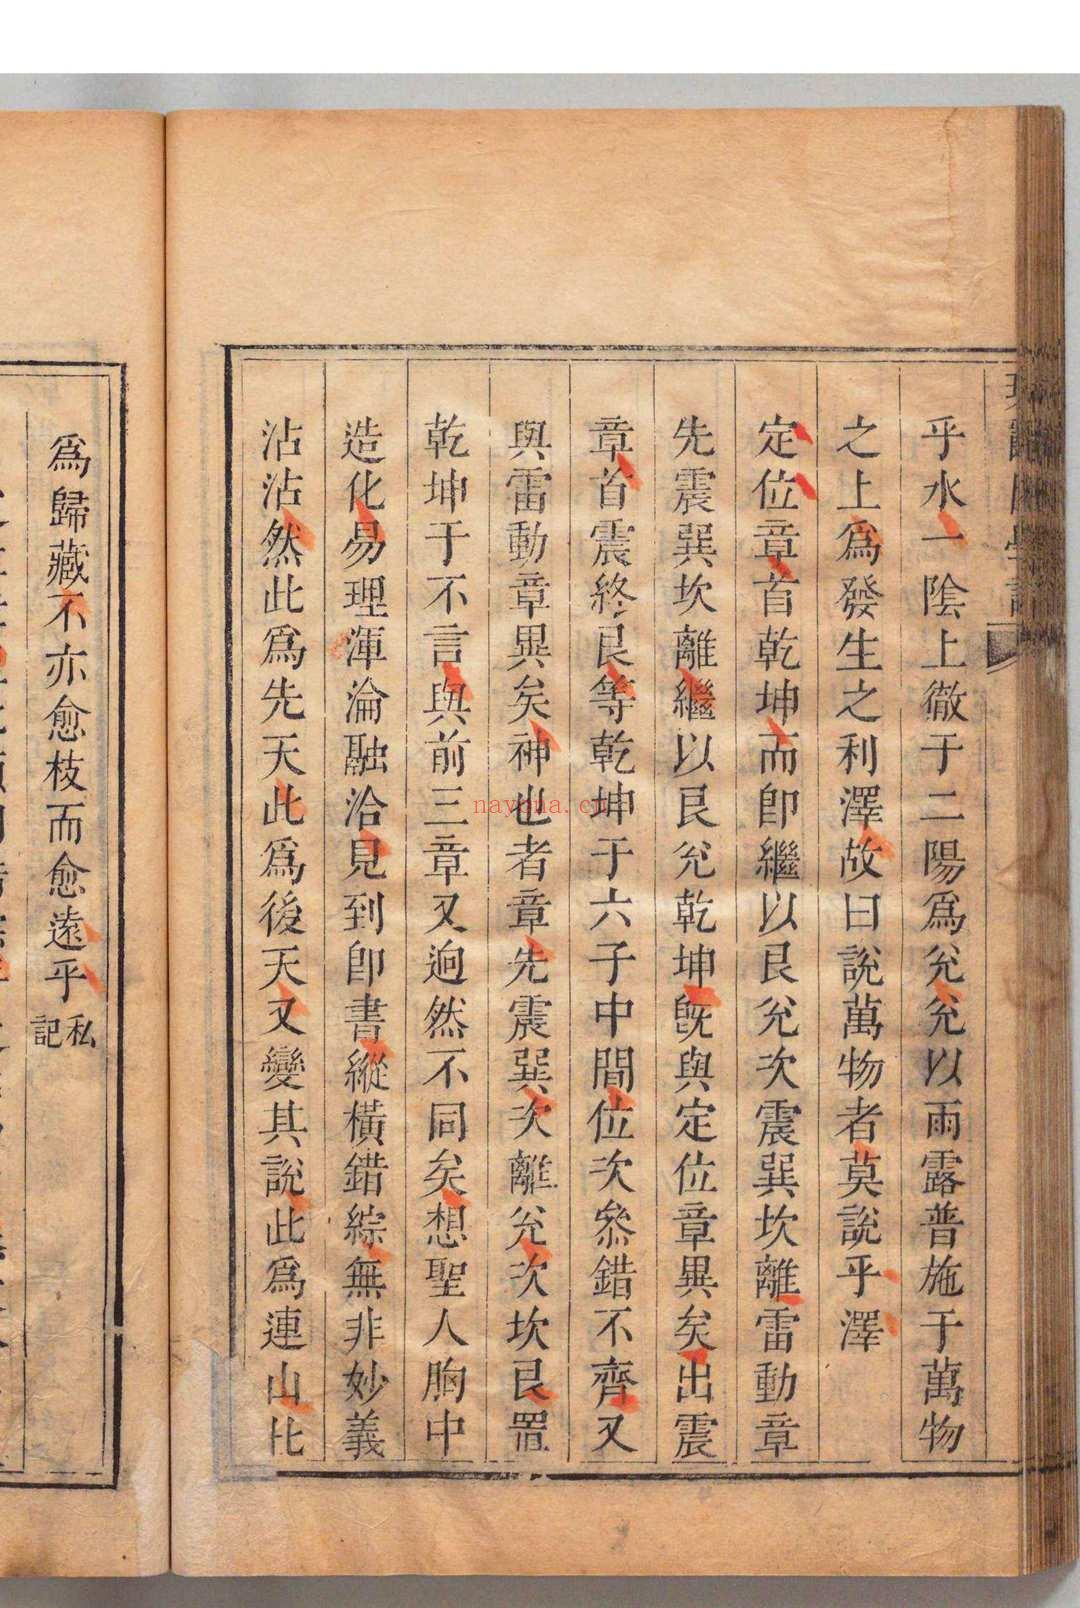 乎水一陰上徹于二陽爲兊兊以雨露普施于萬物
之上爲發生之利澤故曰說萬物者莫說乎澤
定位章首乾坤而卽繼以艮兊次震巽坎離雷動章
先震巽坎離繼以艮兊乾坤旣與定位章異矣出震
章首震終艮等乾坤于六子中間位次叅錯不齊又
與雷動章異矣神也者章先震巽次離兊次坎艮置
乾坤于不言與前三章又逈然不同矣想聖人胸中
造化易理渾淪融洽見到卽書縱橫錯綜無非妙義
沾沾然此爲先天此爲後天又變其說此爲連山比
爲歸藏不亦愈枝而愈遠乎私
記
nayona.cn